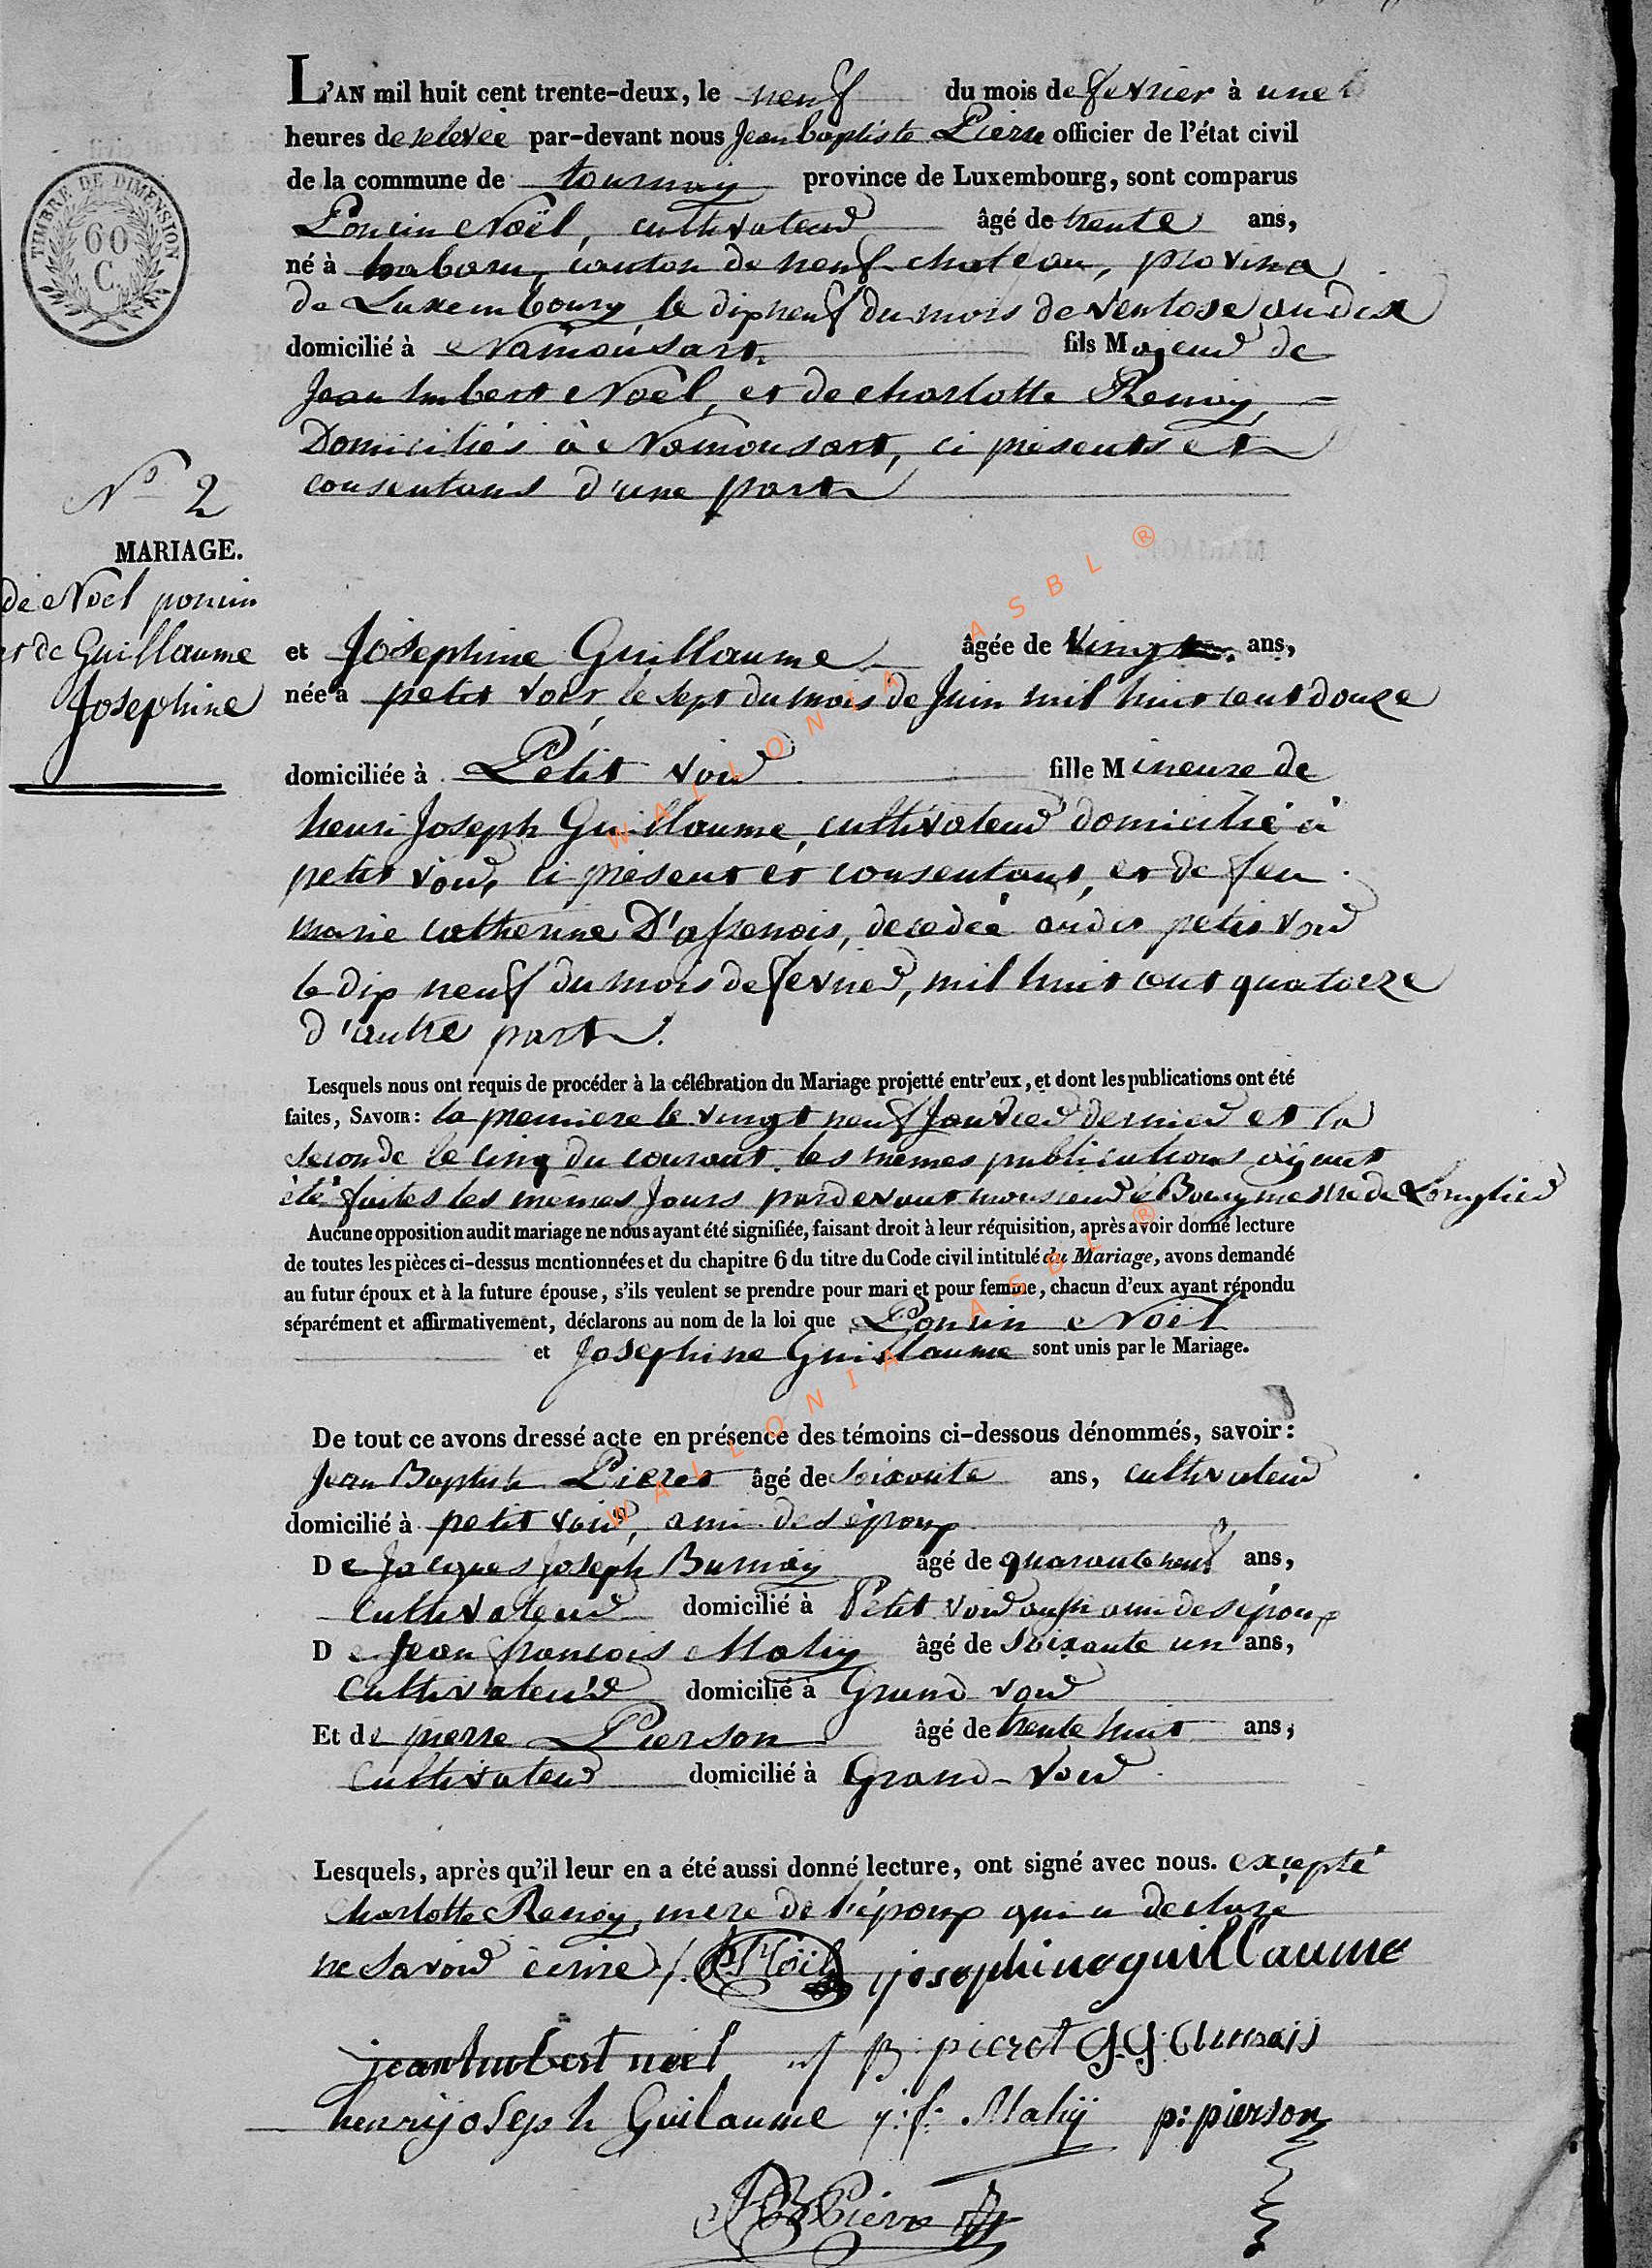 L'AN mil huit cent trente-deux, le neuf du mois de fevrier à une
heures de relevée par-devant nous Jean baptiste Pierre officier de l'état civil
de la commune de tournay province de Luxembourg, sont comparus
Poncin Noël, cultivateur âgé de trente ans,
né à habaru, canton de neufchateau, province
de Luxembourg le dix neuf du mois de ventose an dix
domicilié à Namousart fils Majeur de
Jean humbert Noël, et de charlotte Renoy,
Domiciliés à Namousart, ci présents et
consentans d'une part
TIMBRE DE DIMENSION
60
C.
N° 2
MARIAGE.
de Noël poncin
et de Guillaume
Josephine
et Joséphine Guillaume âgée de vingt ans,
née à petit voir, le sept du mois de Juin mil huit cent douze
domiciliée à Petit voir fille Mineure de
henri Joseph Guillaume, cultivateur domicilié à
petit voir, ci présent et consentant, et de feu
marie catherine D'assenois, decedée audit petit voir
le dix neuf du mois de fevrier, mil huit cent quatorze
d'autre part.
Lesquels nous ont requis de procéder à la célébration du Mariage projetté entr'eux, et dont les publications ont été
faites, SAVOIR: la premiere le vingt neuf Janvier dernier et la
seconde le cinq du courant. les mêmes publications aÿant
été faites les mêmes Jours pardevant monsieur le Bourgmestre de Longlier
Aucune opposition audit mariage ne nous ayant été signifiée, faisant droit à leur réquisition, après avoir donné lecture
de toutes les pièces ci-dessus mentionnées et du chapitre 6 du titre du Code civil intitulé du Mariage, avons demandé
au futur époux et à la future épouse, s'ils veulent se prendre pour mari et pour femme, chacun d'eux ayant répondu
séparément et affirmativement, déclarons au nom de la loi que Poncin Noël
et Josephine Guillaume sont unis par le Mariage.
De tout ce avons dressé acte en présence des témoins ci-dessous dénommés, savoir:
Jean Baptiste Pieret âgé de soixante ans, cultivateur
domicilié à petit voir, ami des époux
De Jacques Joseph Burnay âgé de quarante neuf ans,
Cultivateur domicilié à Petit voir aussi ami des époux
De Jean françois Mahy âgé de Soixante un ans,
Cultivateur domicilié à Grand voir
Et de pierre Pierson âgé de trente huit ans,
Cultivateur domicilié à Grand-Voir
Lesquels, après qu'il leur en a été aussi donné lecture, ont signé avec nous. excepté
Charlotte Renoy, mere de l'époux qui a declaré
ne savoir écrire /. P Noël josephine guillaume
jean humbert noel j B pierot
henrij oseph Guilaume j. f. Mahÿ p: pierson
JB Pierre
WALLONIA ASBL ®
WALLONIA ASBL ®